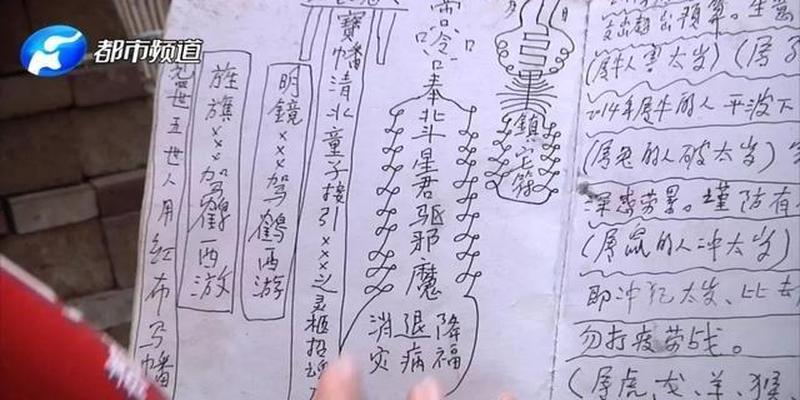 都市频道
五世人用红布写幡
旌旗×××驾鹤西游
明鏡×××驾鹤西游
寶幡清北童子接引×××之灵柩招
奉北斗星君驱邪魔
消灾
退病
降福
鎮宅符
(属牛人害太岁)(属
2014年属牛的人平波下
(属兔的人破太岁)
深感劳累。谨防有
(属鼠的人冲太岁)
即冲犯太岁、比去
勿打疲劳战。
(属虎、龙、羊、猴、